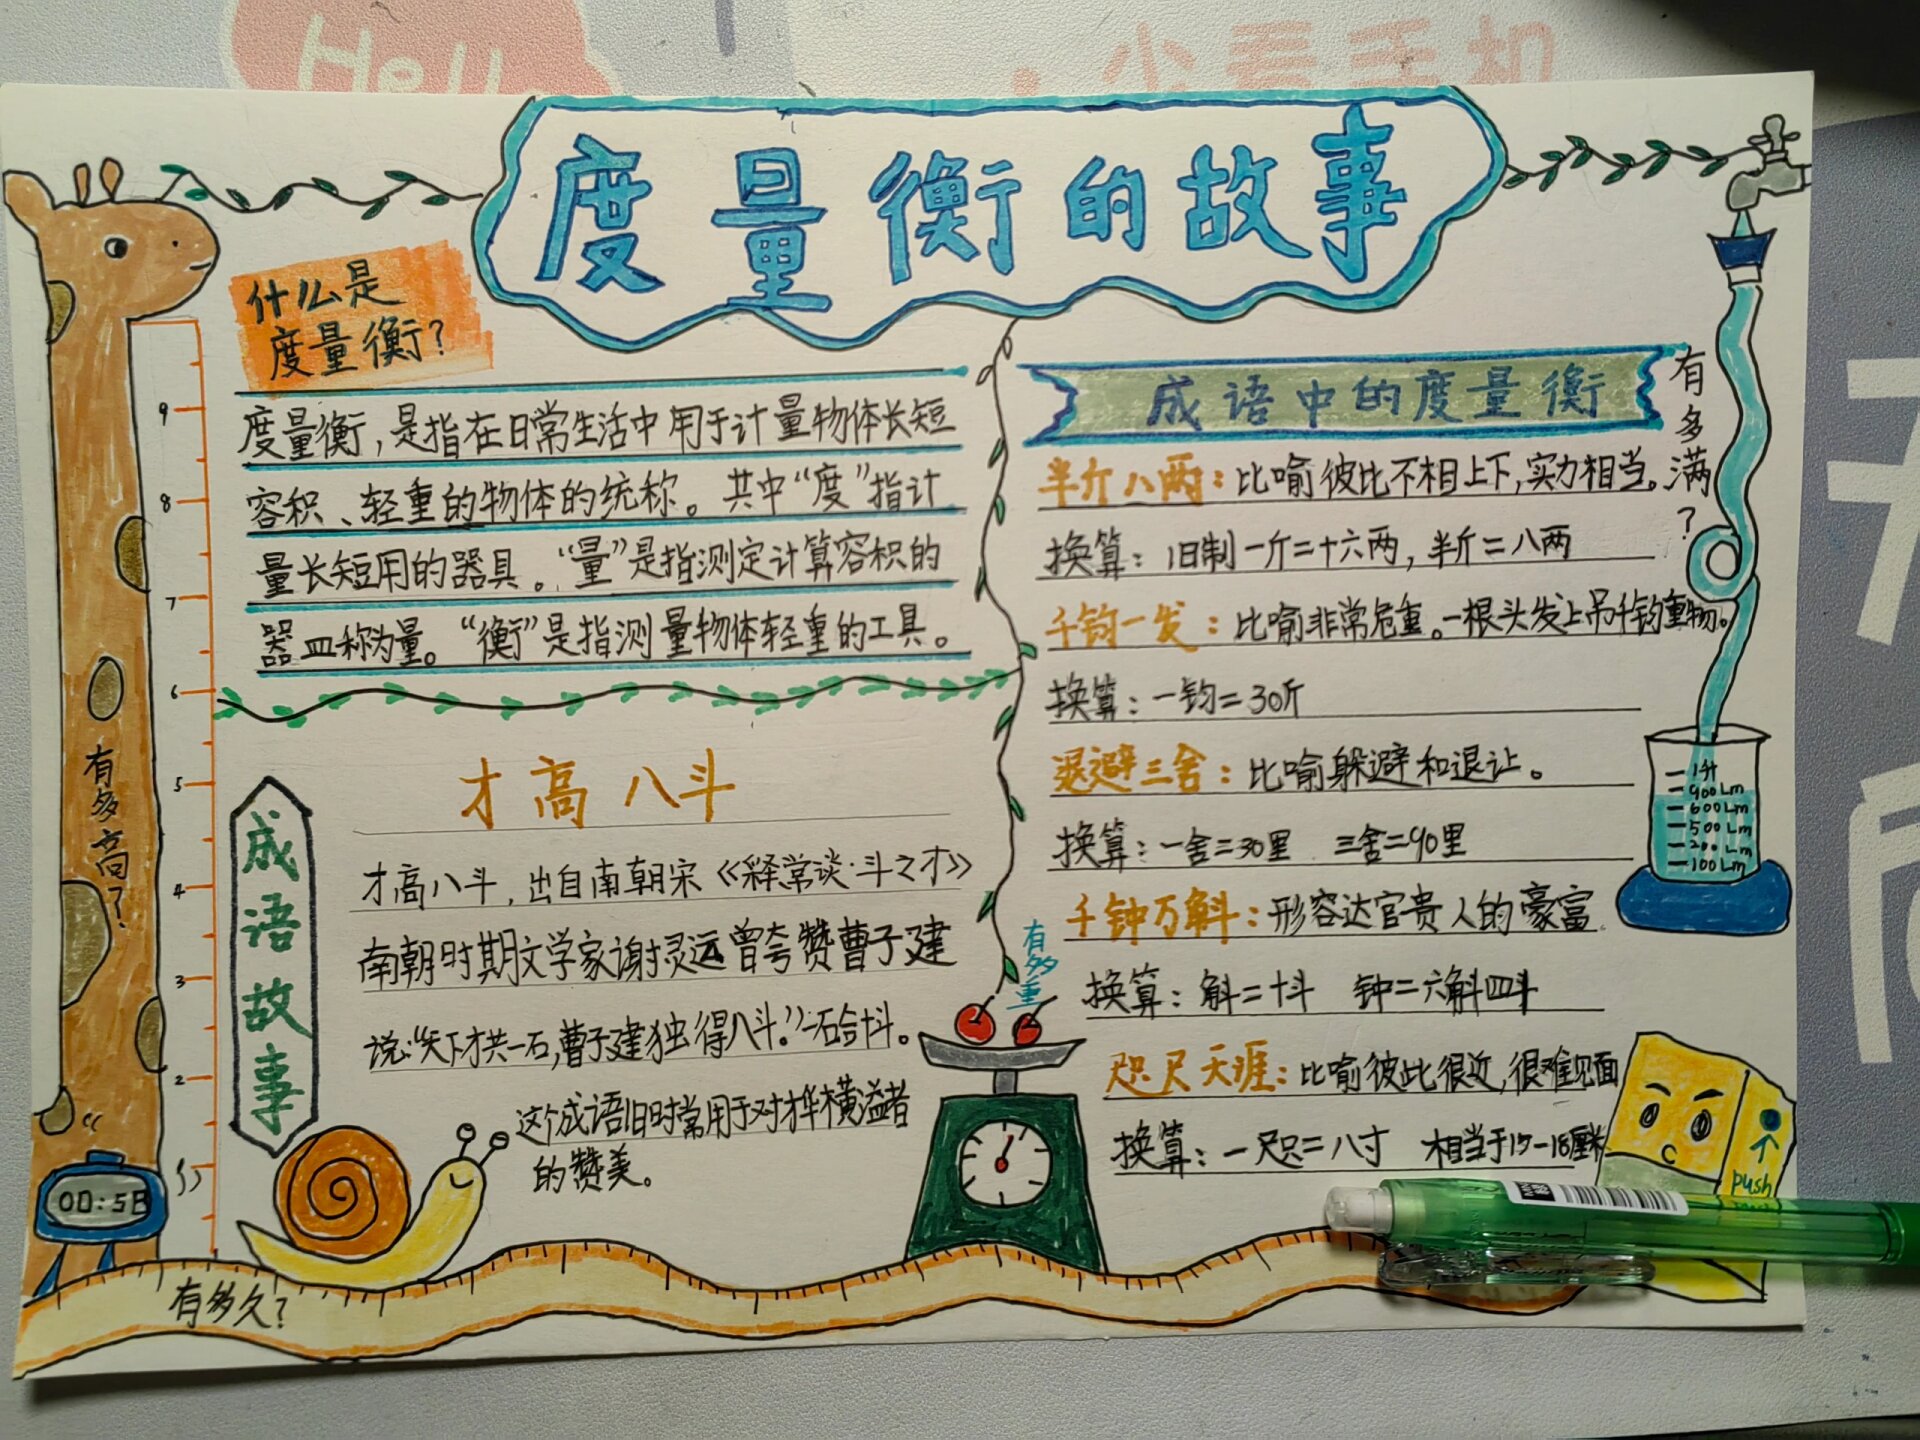 Hell
少看手机
度量衡的故事
什么是
度量衡?
度量衡,是指在日常生活中用于计量物体长短
容积、轻重的物体的统称。其中“度”指计
量长短用的器具。“量”是指测定计算容积的
器皿称为量。“衡”是指测量物体轻重的工具。
9
8
7
6
5
4
3
2
有多高?
成语故事
才高八斗
才高八斗,出自南朝宋《释常谈·斗之才》
南朝时期文学家谢灵远曾夸赞曹子建
说:“天下才共一石,曹子建独得八斗。”一石合十斗。
这个成语旧时常用于对才华横溢者
的赞美。
00:58
有多久?
成语中的度量衡
半斤八两:比喻彼比不相上下,实力相当。
换算:旧制一斤=十六两,半斤=八两
千钧一发:比喻非常危重。一根头发上吊千钧重物。
换算:一钧=30斤
退避三舍:比喻躲避和退让。
换算:一舍=30里 三舍=90里
千钟万斛:形容达官贵人的豪富
换算:斛=十斗 钟=六斛四斗
咫尺天涯:比喻彼此很近,很难见面
换算:一咫=八寸 相当于17-18厘米
有多满?
1升
900Lm
600Lm
500Lm
200Lm
100Lm
有多重
push